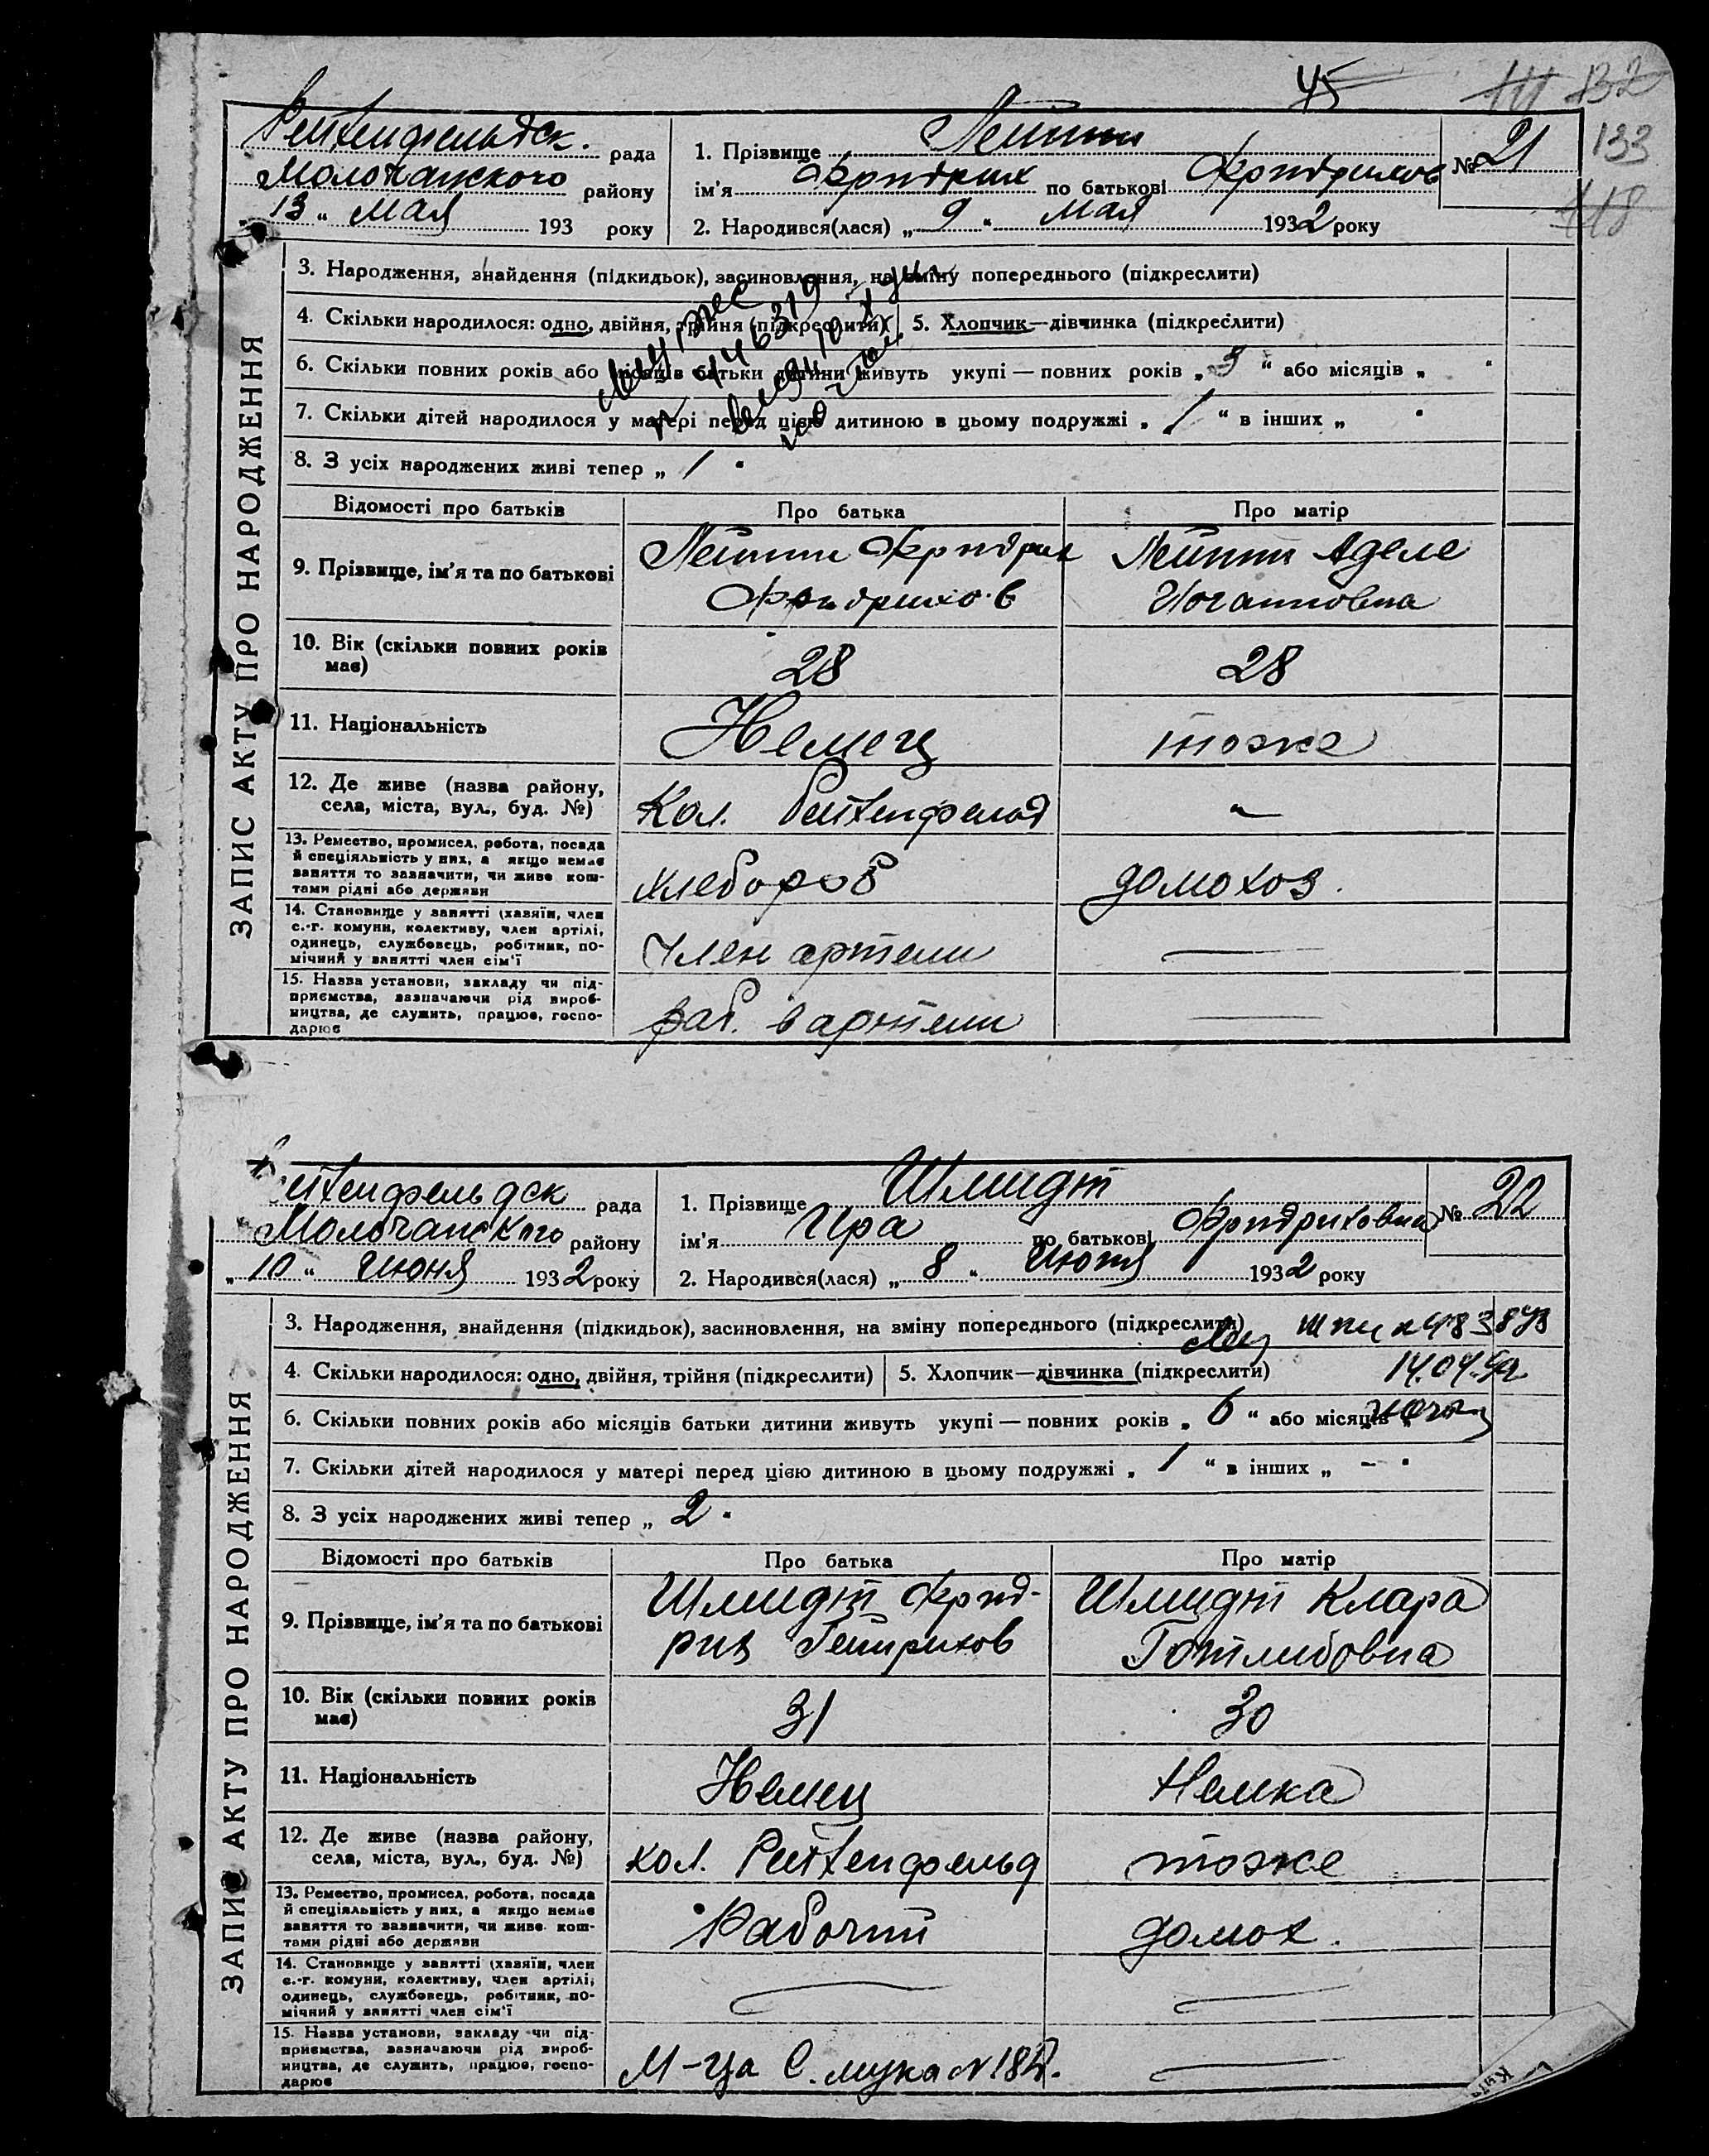 45
132
133
118
Рейхенфельдск. рада
Молочанского району
„13“ мая 193 року
1. Прізвище
ім'я Фридрих по батькові Фридрихов
2. Народився(лася) „9“ мая 1932 року
№ 21
ЗАПИС АКТУ ПРО НАРОДЖЕННЯ
3. Народження, знайдення (підкидьок), засиновлення, на зміну попереднього (підкреслити)
4. Скільки народилося: одно, двійня, трійня (підкреслити)
5. Хлопчик—дівчинка (підкреслити)
6. Скільки повних років або місяців батьки дитини живуть укупі — повних років „3“ або місяців „ “
7. Скільки дітей народилося у матері перед цією дитиною в цьому подружжі „1“ в інших „ “
8. З усіх народжених живі тепер „1“
Відомості про батьків
Про батька
Про матір
9. Прізвище, ім'я та по батькові
Фридрих
Фридрихов
Аделе
Иогановна
10. Вік (скільки повних років
має)
28
28
11. Національність
Немец
тоже
12. Де живе (назва району,
села, міста, вул., буд. №)
Кол. Рейхенфельд
"
13. Ремество, промисел, робота, посада
й спеціяльність у них, а якщо немає
заняття то зазначити, чи живе кош-
тами рідні або держави
хлебороб
домохоз.
14. Становище у занятті (хазяїн, член
с.-г. комуни, колективу, член артілі,
одинець, службовець, робітник, по-
мічний у занятті член сім'ї
член артели
15. Назва установи, закладу чи під-
приємства, зазначаючи рід вироб-
ництва, де служить, працює, госпо-
дарює
раб. в артели
Рейхенфельдск рада
Молочанского району
„10“ Июня 1932 року
1. Прізвище Шмидт
ім'я Ира по батькові Фридриховна
2. Народився(лася) „8“ Июня 1932 року
№ 22
ЗАПИС АКТУ ПРО НАРОДЖЕННЯ
3. Народження, знайдення (підкидьок), засиновлення, на зміну попереднього (підкреслити)
4. Скільки народилося: одно, двійня, трійня (підкреслити)
5. Хлопчик—дівчинка (підкреслити)
6. Скільки повних років або місяців батьки дитини живуть укупі — повних років „6“ або місяців „
7. Скільки дітей народилося у матері перед цією дитиною в цьому подружжі „1“ в інших „–“
8. З усіх народжених живі тепер „2“
Відомості про батьків
Про батька
Про матір
9. Прізвище, ім'я та по батькові
Шмидт Фрид-
рих Гейнрихов
Шмидт Клара
Готлибовна
10. Вік (скільки повних років
має)
31
30
11. Національність
Немец
Немка
12. Де живе (назва району,
села, міста, вул., буд. №)
кол. Рейхенфельд
тоже
13. Ремество, промисел, робота, посада
й спеціяльність у них, а якщо немає
заняття то зазначити, чи живе кош-
тами рідні або держави
Рабочий
домох.
14. Становище у занятті (хазяїн, член
с.-г. комуни, колективу, член артілі,
одинець, службовець, робітник, по-
мічний у занятті член сім'ї
15. Назва установи, закладу чи під-
приємства, зазначаючи рід вироб-
ництва, де служить, працює, госпо-
дарює
М-ца С. мука